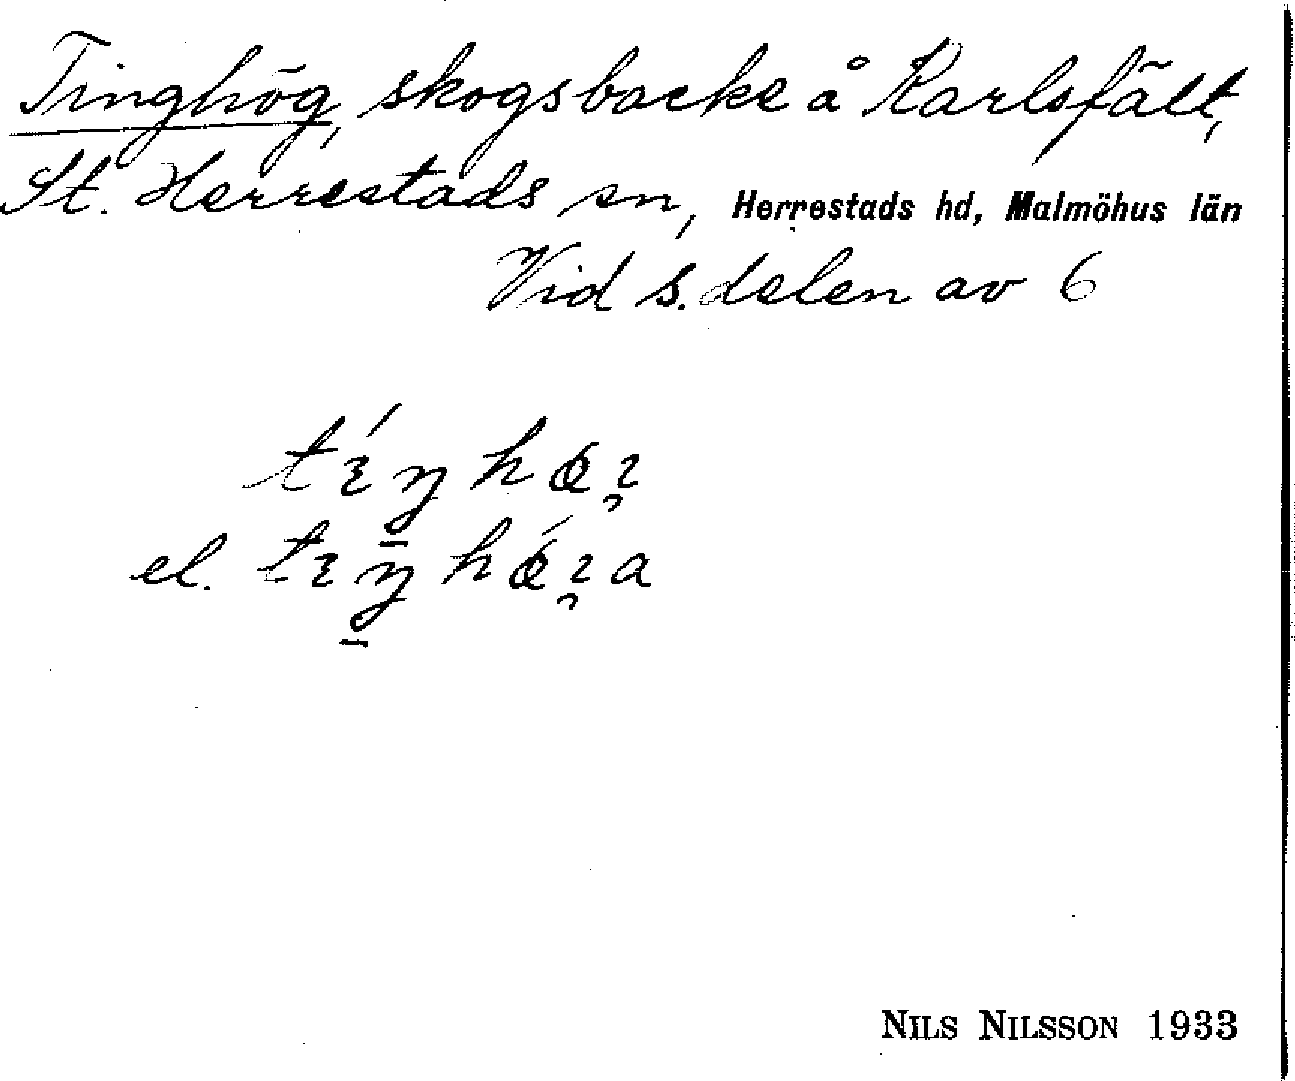 Tinghög, skogsbacke å Karlsfält,
St. Herrestads sn, Herrestads hd, Malmöhus län
Vid s. delen av 6
tíŋhœɿ̯
el. tɪŋhœ́ɿ̯a
NILS NILSSON 1933